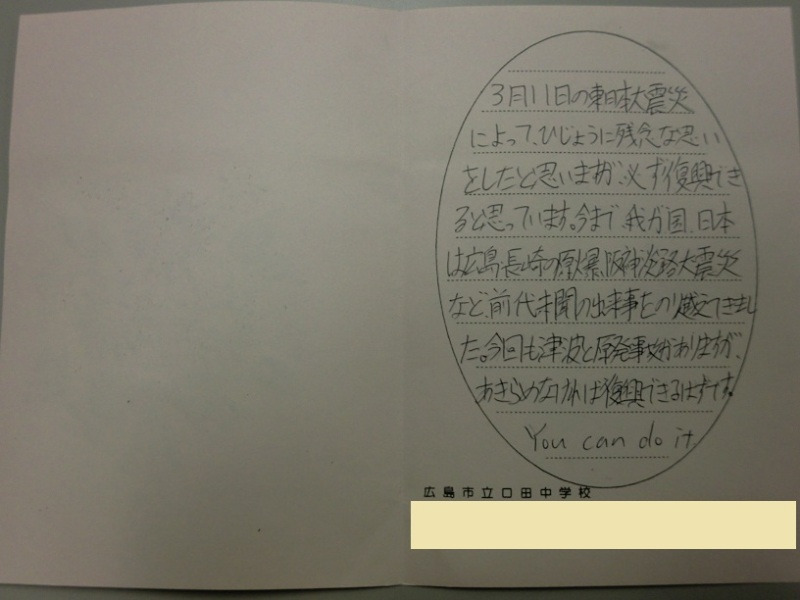 3月11日の東日本大震災
によって、ひじょうに残念な思い
をしたと思いますが、必ず復興でき
ると思っています。今まで、我が国、日本
は広島、長崎の原爆、阪神淡路大震災
など、前代未聞の出来事をのり越えてきまし
た。今回も津波と原発事故がありますが、
あきらめなければ復興できるはずです。
You can do it.
広島市立口田中学校